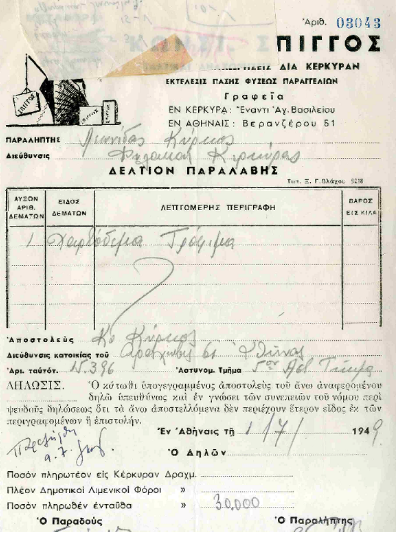 Ἀριθ. 03043
ΣΠΙΓΓΟΣ
ΔΙΑ ΚΕΡΚΥΡΑΝ
ΕΚΤΕΛΕΣΙΣ ΠΑΣΗΣ ΦΥΣΕΩΣ ΠΑΡΑΓΓΕΛΙΩΝ
Γραφεῖα
ΕΝ ΚΕΡΚΥΡΑ: Ἔναντι Ἁγ. Βασιλείου
ΕΝ ΑΘΗΝΑΙΣ: Βερανζέρου 51
ΠΑΡΑΛΗΠΤΗΣ Λεωνίδας Κύρκος
Διεύθυνσις Φυλακαὶ Κερκύρας
ΔΕΛΤΙΟΝ ΠΑΡΑΛΑΒΗΣ
Τυπ. Ξ. Γ. Βλάχου
ΑΥΞΩΝ ΑΡΙΘ. ΔΕΜΑΤΩΝ ΕΙΔΟΣ ΔΕΜΑΤΩΝ ΛΕΠΤΟΜΕΡΗΣ ΠΕΡΙΓΡΑΦΗ ΒΑΡΟΣ ΕΙΣ ΚΙΛΑ
1 Χαρτόδεμα Τρόφιμα
Ἀποστολεύς Κύρκος
Διεύθυνσις κατοικίας τοῦ 61 Ἀθήνας
Ἀρι. ταύτοτ. 15.396 Ἀστυνομ. Τμῆμα 5ον
ΔΗΛΩΣΙΣ. Ὁ κάτωθι ὑπογεγραμμένος ἀποστολεὺς τοῦ ἄνω ἀναφερομένου
δηλῶ ὑπευθύνως καὶ ἐν γνώσει τῶν συνεπειῶν τοῦ νόμου περὶ
ψευδοῦς δηλώσεως ὅτι τὰ ἄνω ἀποστελλόμενα δὲν περιέχουν ἕτερον εἶδος ἐκ τῶν
περιγραφομένων ἢ ἐπιστολήν.
Ἐν Ἀθήναις τῇ 1/7/ 1949
Ὁ Δηλῶν
Ποσὸν πληρωτέον εἰς Κέρκυραν Δραχμ.
Πλέον Δημοτικοὶ Λιμενικοὶ Φόροι »
Ποσὸν πληρωθὲν ἐνταῦθα » 30,000
Ὁ Παραδοὺς Ὁ Παραλήπτης